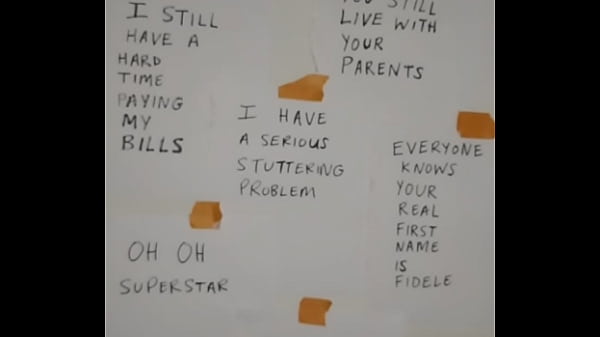 I STILL
HAVE A
HARD
TIME
PAYING
MY
BILLS
STILL
LIVE WITH
YOUR
PARENTS
I HAVE
A SERIOUS
STUTTERING
PROBLEM
EVERYONE
KNOWS
YOUR
REAL
FIRST
NAME
IS
FIDELE
OH OH
SUPERSTAR